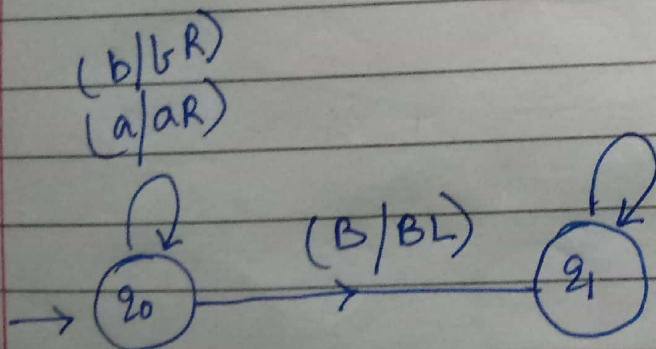 (b/bR)
(a/aR)
(B/BL)
q0
q1